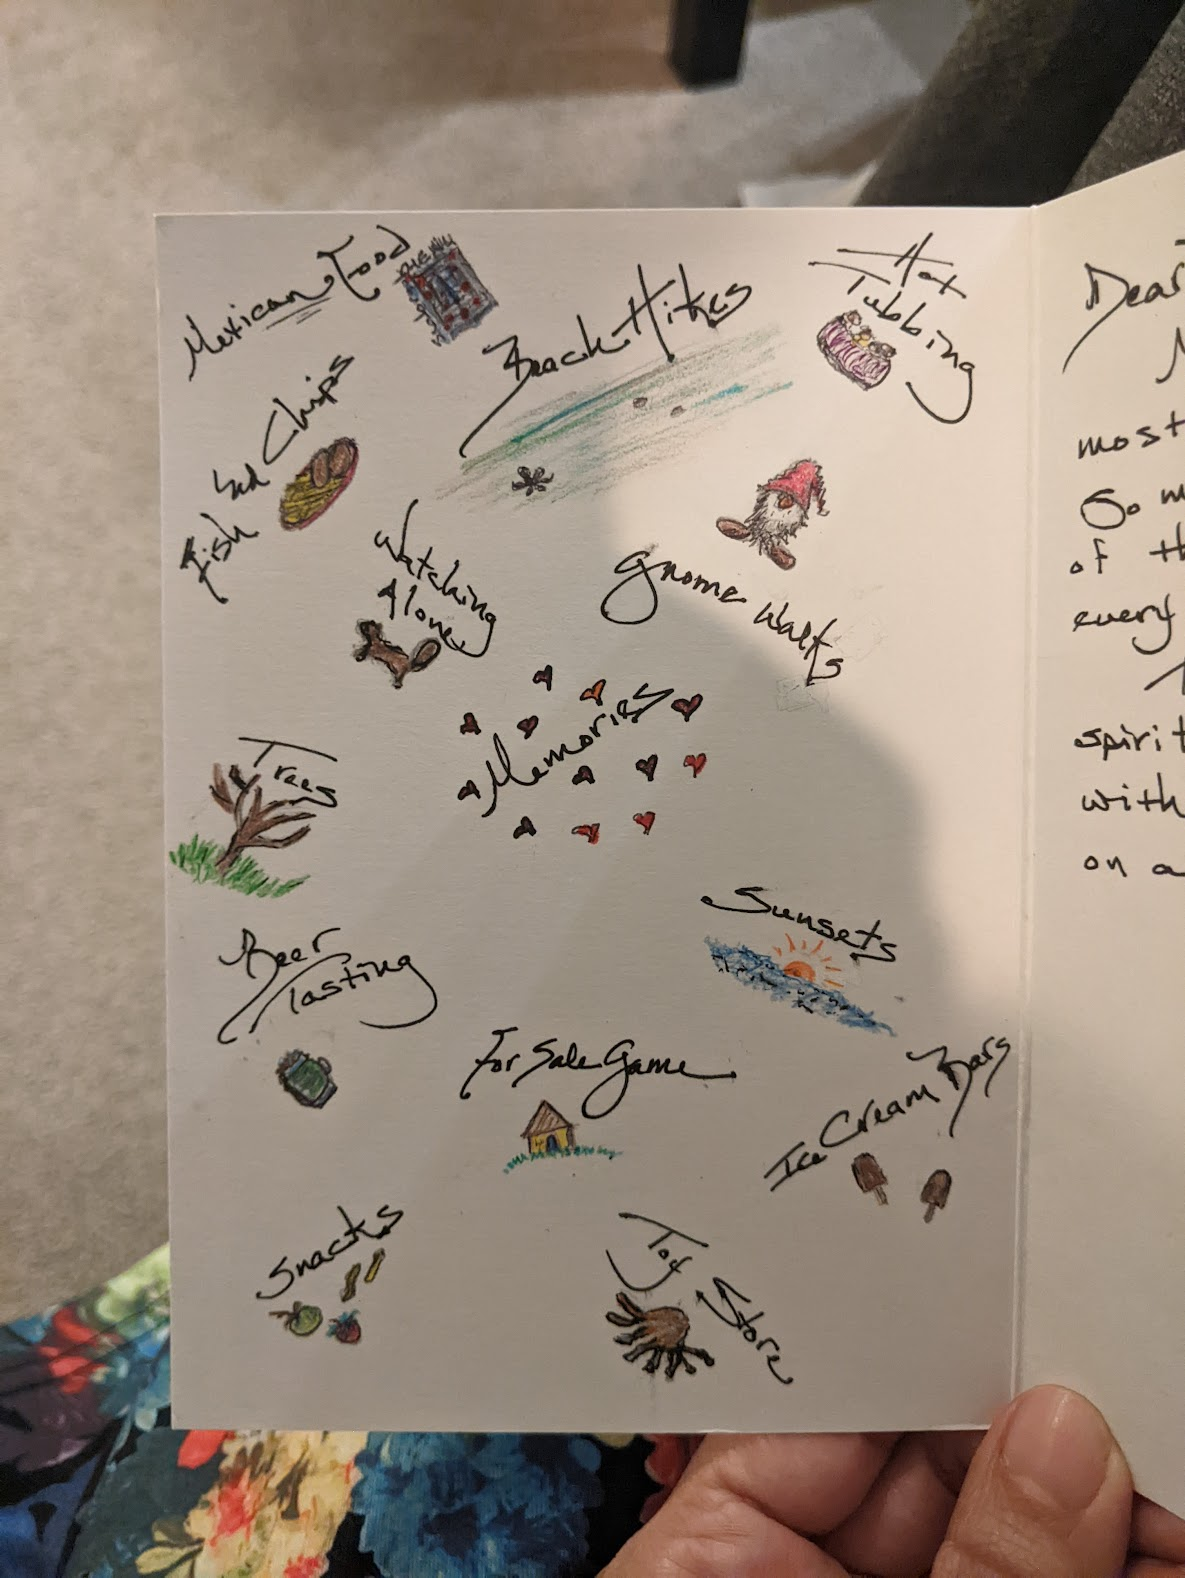 Mexican Food
MENU
Beach Hikes
Hot
Tubbing
Fish and Chips
Watching
Alone
Gnome Walks
Memories
Trees
Beer
Tasting
Sunsets
For Sale Game
Ice Cream Bars
Snacks
Toy Store
Dear
most
So m
of th
every
spirit
with
on a